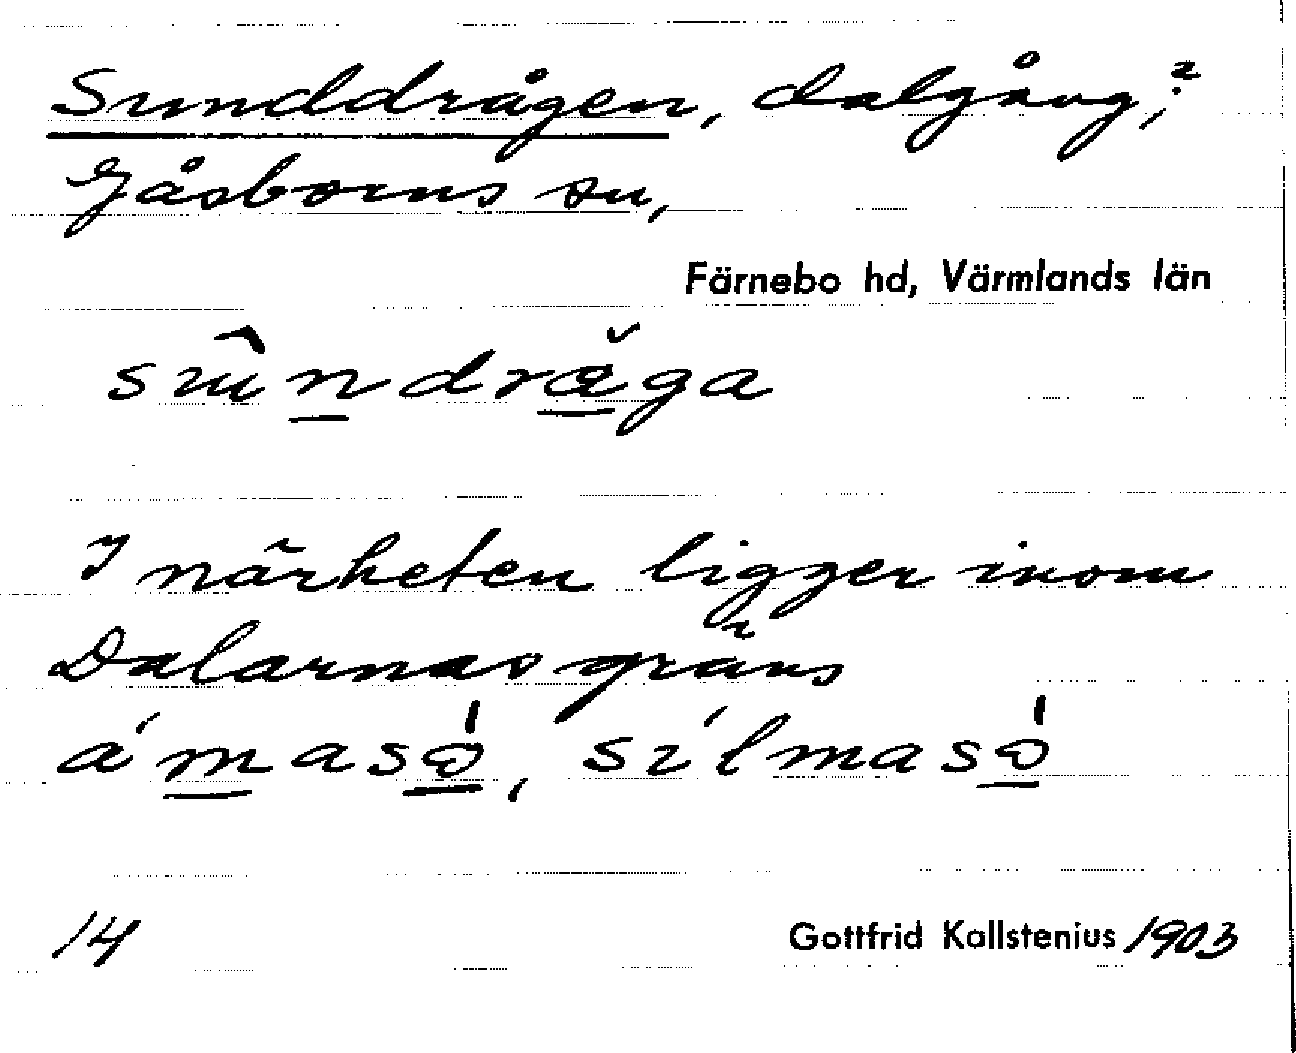 Sunddrågen, dalgång;?
Gåsborns sn,
Färnebo hd, Värmlands län
sûndrăga
I närheten ligger inom
Dalarnas gräns
ámasò, sílmasò
14 Gottfrid Kallstenius 1903